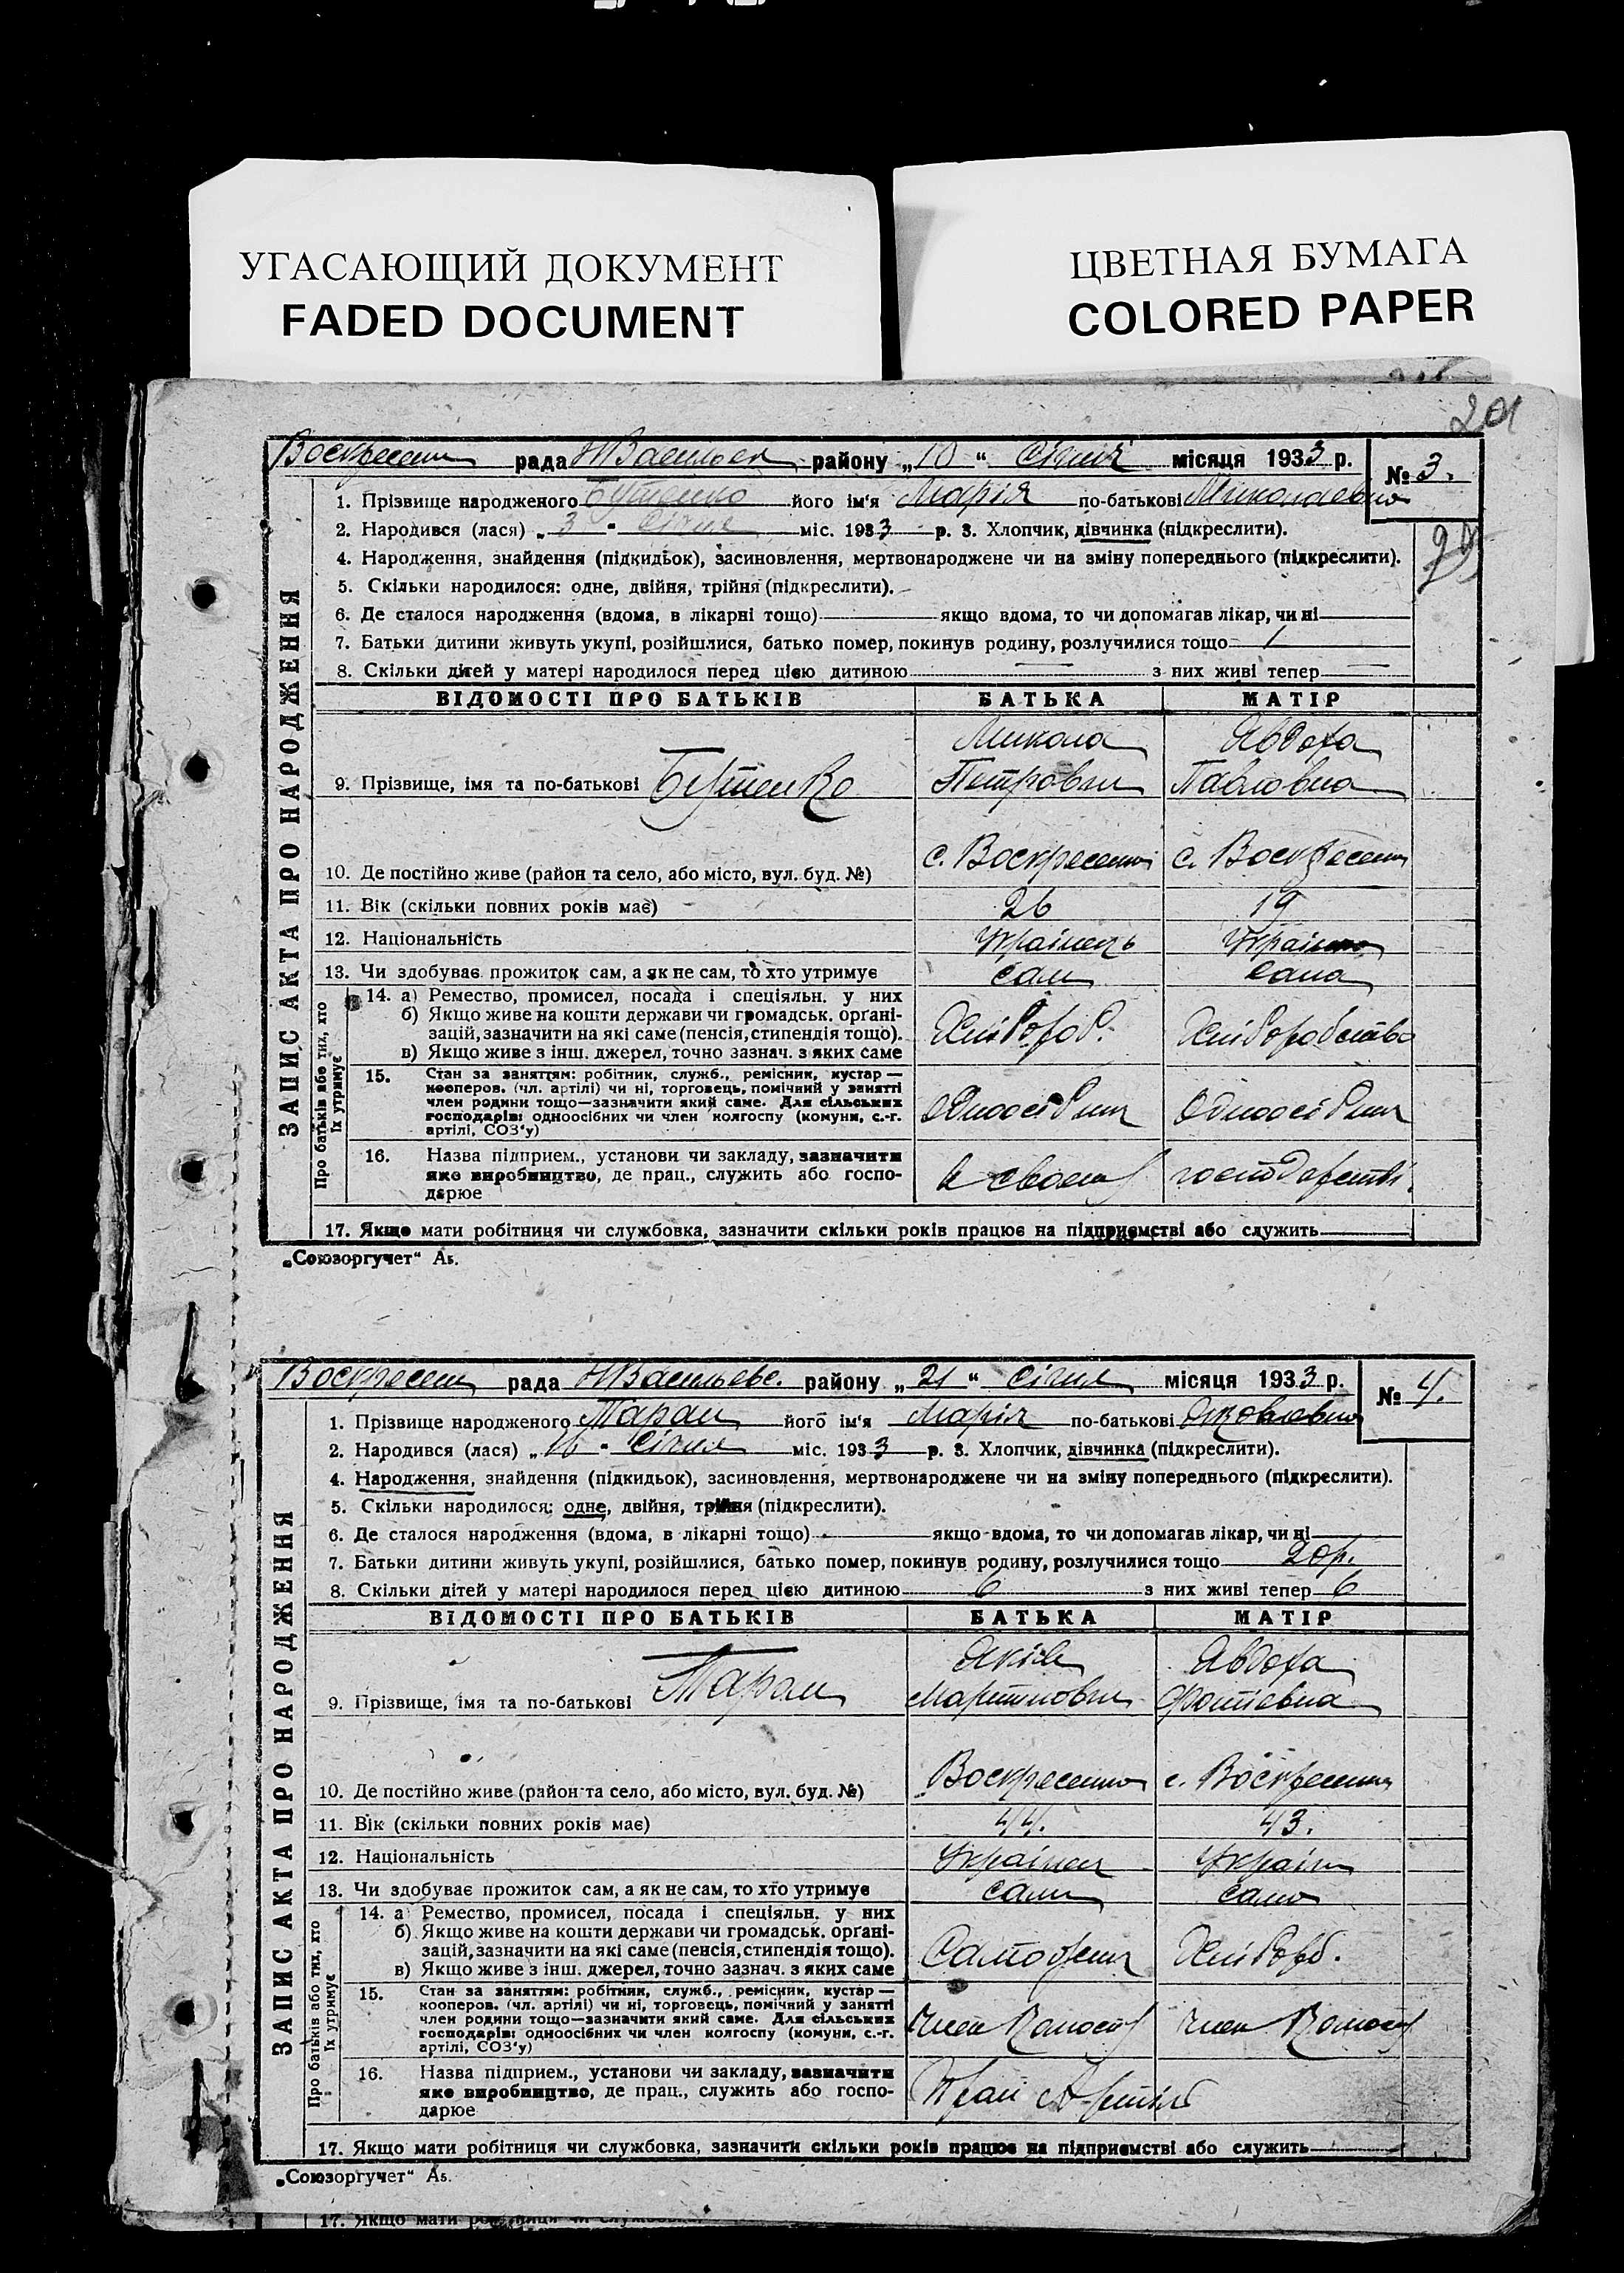 УГАСАЮЩИЙ ДОКУМЕНТ
FADED DOCUMENT
ЦВЕТНАЯ БУМАГА
COLORED PAPER
201
ЗАПИС АКТА ПРО НАРОДЖЕННЯ
Воскресен рада НВасильев району „10“ січня місяця 1933 р. № 3.
1. Прізвище народженого Бутенко його ім'я Марія по-батькові Миколаевна
2. Народився (лася) „3“ Січня міс. 1933 р. 3. Хлопчик, дівчинка (підкреслити).
4. Народження, знайдення (підкидьок), засиновлення, мертвонароджене чи на зміну попереднього (підкреслити).
5. Скільки народилося: одне, двійня, трійня (підкреслити).
6. Де сталося народження (вдома, в лікарні тощо) якщо вдома, то чи допомагав лікар, чи ні
7. Батьки дитини живуть укупі, розійшлися, батько помер, покинув родину, розлучилися тощо 1
8. Скільки дітей у матері народилося перед цією дитиною з них живі тепер
ВІДОМОСТІ ПРО БАТЬКІВ БАТЬКА МАТІР
9. Прізвище, імя та по-батькові Бутенко Микола Петрович Авдотя Павловна
10. Де постійно живе (район та село, або місто, вул. буд. №) с. Воскресенш с. Воскресенш
11. Вік (скільки повних років має) 26 19
12. Національність Українець Українка
13. Чи здобуває прожиток сам, а як не сам, то хто утримує сам сама
Про батьків або тих, хто їх утримує
14. а) Ремество, промисел, посада і спеціяльн. у них
б) Якщо живе на кошти держави чи громадськ. органі-
зацій, зазначити на які саме (пенсія, стипендія тощо).
в) Якщо живе з інш. джерел, точно зазнач. з яких саме
Хлібороб. Хліборобство
15. Стан за заняттям: робітник, служб., ремісник, кустар —
кооперов. (чл. артілі) чи ні, торговець, помічний у занятті
член родини тощо—зазначити який саме. Для сільських
господарів: одноосібних чи член колгоспу (комуни, с.-г.
артілі, СОЗ'у)
Одноосібник Одноосібник
16. Назва підприєм., установи чи закладу, зазначити
яке виробництво, де прац., служить або госпо-
дарює
в своему господарстві.
17. Якщо мати робітниця чи службовка, зазначити скільки років працює на підприємстві або служить
„Союзоргучет“ А5.
ЗАПИС АКТА ПРО НАРОДЖЕННЯ
Воскресен рада НВасильевс. району „21“ січня місяця 1933 р. № 4.
1. Прізвище народженого Таран його ім'я Марія по-батькові Яковлевна
2. Народився (лася) „16“ Січня міс. 1933 р. 3. Хлопчик, дівчинка (підкреслити).
4. Народження, знайдення (підкидьок), засиновлення, мертвонароджене чи на зміну попереднього (підкреслити).
5. Скільки народилося: одне, двійня, трійня (підкреслити).
6. Де сталося народження (вдома, в лікарні тощо) якщо вдома, то чи допомагав лікар, чи ні
7. Батьки дитини живуть укупі, розійшлися, батько помер, покинув родину, розлучилися тощо 20р.
8. Скільки дітей у матері народилося перед цією дитиною 6 з них живі тепер 6
ВІДОМОСТІ ПРО БАТЬКІВ БАТЬКА МАТІР
9. Прізвище, імя та по-батькові Таран Яків Мартинович Авдотя Фотіевна
10. Де постійно живе (район та село, або місто, вул. буд. №) Воскресенш с. Воскресенш
11. Вік (скільки повних років має) 44. 43.
12. Національність Українец Україн
13. Чи здобуває прожиток сам, а як не сам, то хто утримує сам само
Про батьків або тих, хто їх утримує
14. а) Ремество, промисел, посада і спеціяльн. у них
б) Якщо живе на кошти держави чи громадськ. органі-
зацій, зазначити на які саме (пенсія, стипендія тощо).
в) Якщо живе з інш. джерел, точно зазнач. з яких саме
Хлібороб.
15. Стан за заняттям: робітник, служб., ремісник, кустар —
кооперов. (чл. артілі) чи ні, торговець, помічний у занятті
член родини тощо—зазначити який саме. Для сільських
господарів: одноосібних чи член колгоспу (комуни, с.-г.
артілі, СОЗ'у)
Член Член
16. Назва підприєм., установи чи закладу, зазначити
яке виробництво, де прац., служить або госпо-
дарює
17. Якщо мати робітниця чи службовка, зазначити скільки років працює на підприємстві або служить
„Союзоргучет“ А5.
17. Якщо мати